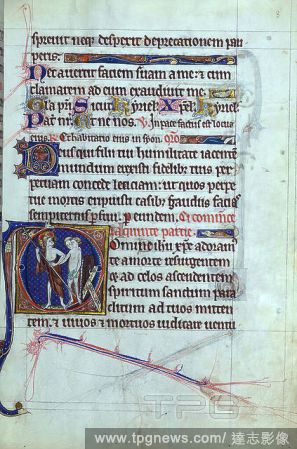 spreuit neq3 despexit deprecationem pau
peris:
Nec auertit faciem suam a me: et cum
clamarem ad eum exaudiuit me.
Gla pri. Sicut. Kyriel. Xpel. Kyriel.
Pat nr. Et ne nos. V. In pace factus est locus
eius. R. Et habitatio eius in syon. Oro
Deus qui filii tui humilitate iacentē
mundum erexisti fidelibz tuis per
petuam concede leticiam: ut quos perpe
tue mortis eripuisti casibz gaudiis facias
sempiternis perfrui. p eundem. Ci commence
la quinte partie.
Domine ihu xpe adoram
te a morte resurgentem
et ad celos ascendentem
spiritum sanctum para
clitum ad tuos mitten
tem. et uiuos et mortuos iudicare uentu
TPG
www.tpgnews.com/ 達志影像